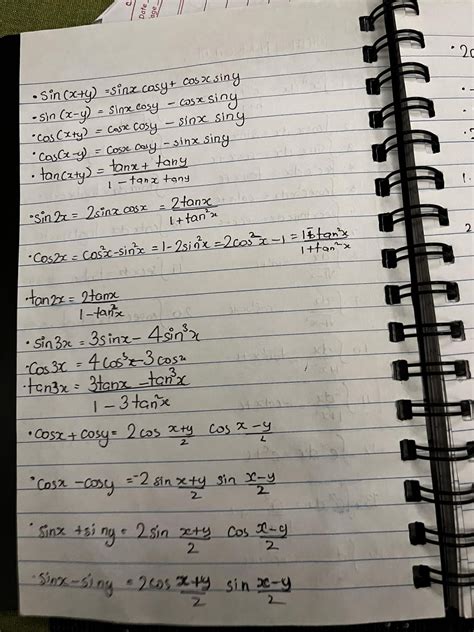 Date
Page
• sin(x+y) = sinx cosy + cosx siny
• sin(x-y) = sinx cosy - cosx siny
• cos(x+y) = cosx cosy - sinx siny
• cos(x-y) = cosx cosy - sinx siny
• tan(x+y) = (tanx + tany)/(1 - tanx tany)
• sin2x = 2sinx cosx = 2tanx/(1+tan²x)
• cos2x = cos²x - sin²x = 1-2sin²x = 2cos²x - 1 = (1-tan²x)/(1+tan²x)
• tan2x = 2tanx/(1-tan²x)
• sin3x = 3sinx - 4sin³x
cos3x = 4cos³x - 3cosx
• tan3x = (3tanx - tan³x)/(1 - 3tan²x)
• cosx + cosy = 2cos (x+y)/2 cos (x-y)/2
• cosx - cosy = -2 sin (x+y)/2 sin (x-y)/2
• sinx + siny = 2sin (x+y)/2 cos (x-y)/2
• sinx - siny = 2cos (x+y)/2 sin (x-y)/2